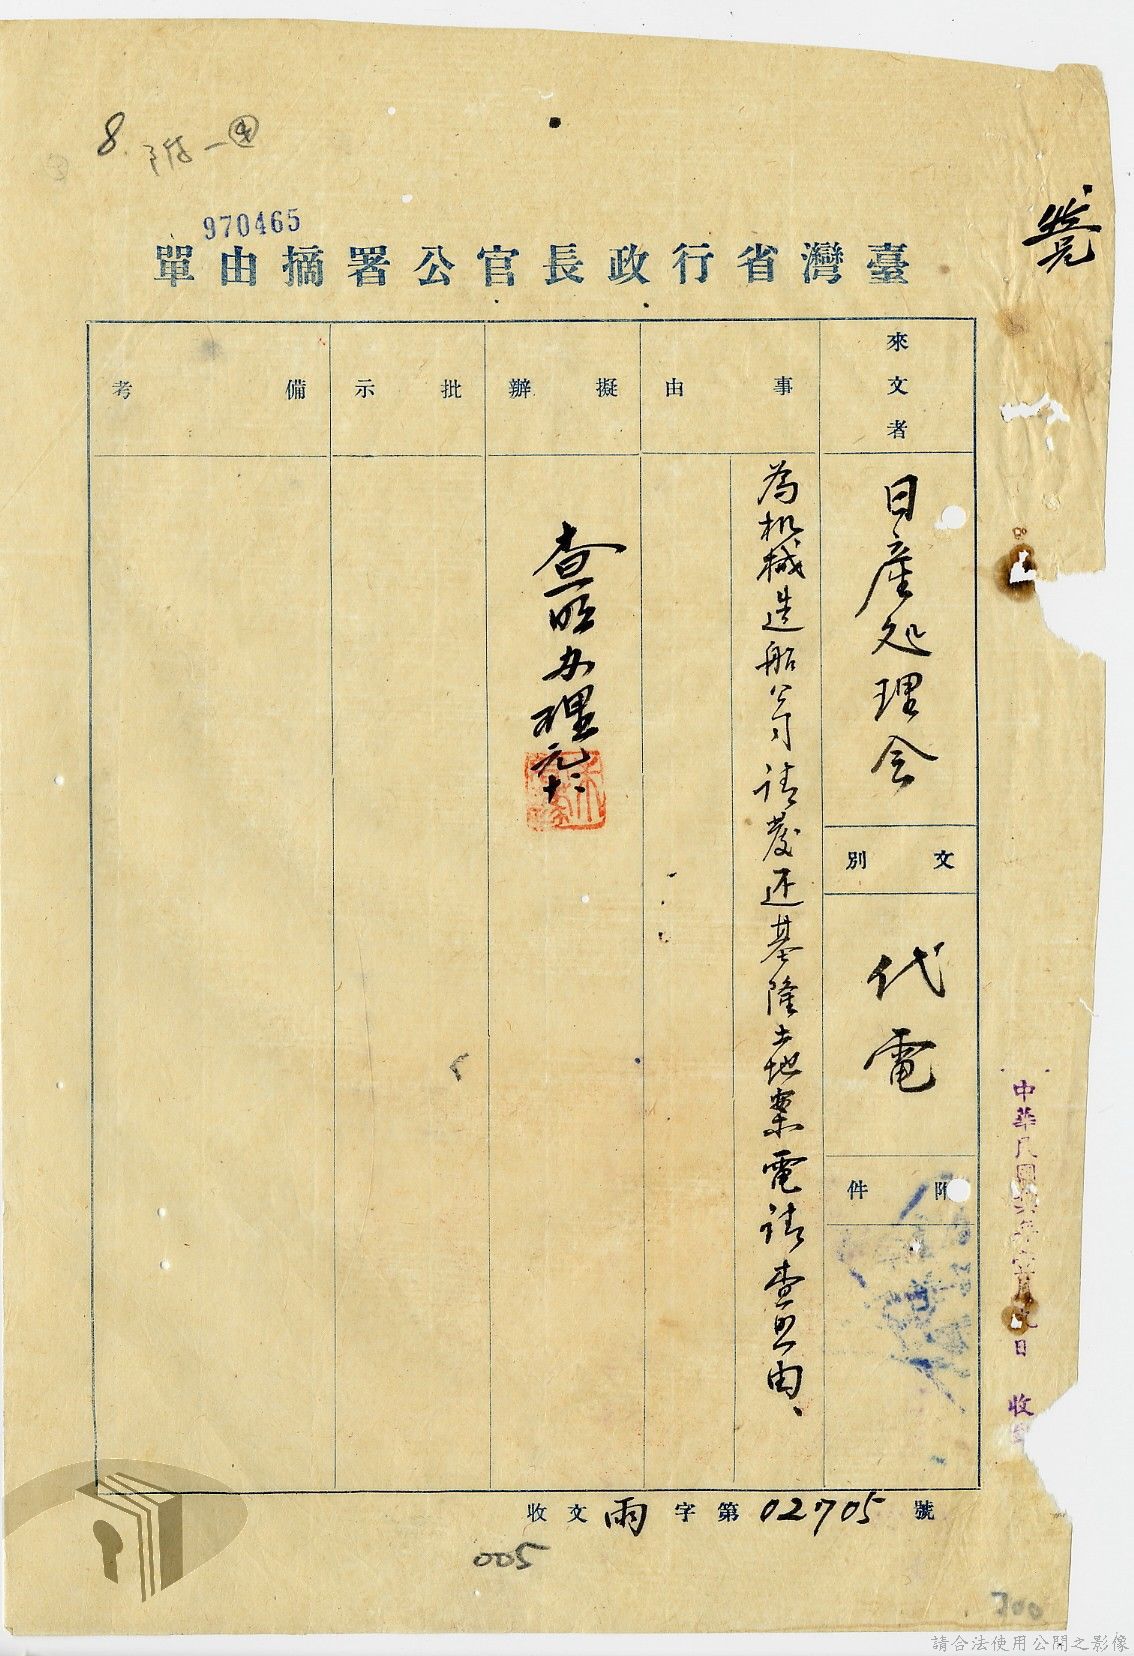 8
附一④
970465
臺灣省行政長官公署摘由單
來文者
日產処理会
文別
代電
附件
事由
為机械造船公司請發还基隆土地案電請查照由、
擬辦
查明办理
元
十二
批示
備考
中華民國
年
月
日
收
收文雨字第02705號
005
700
請合法使用公開之影像